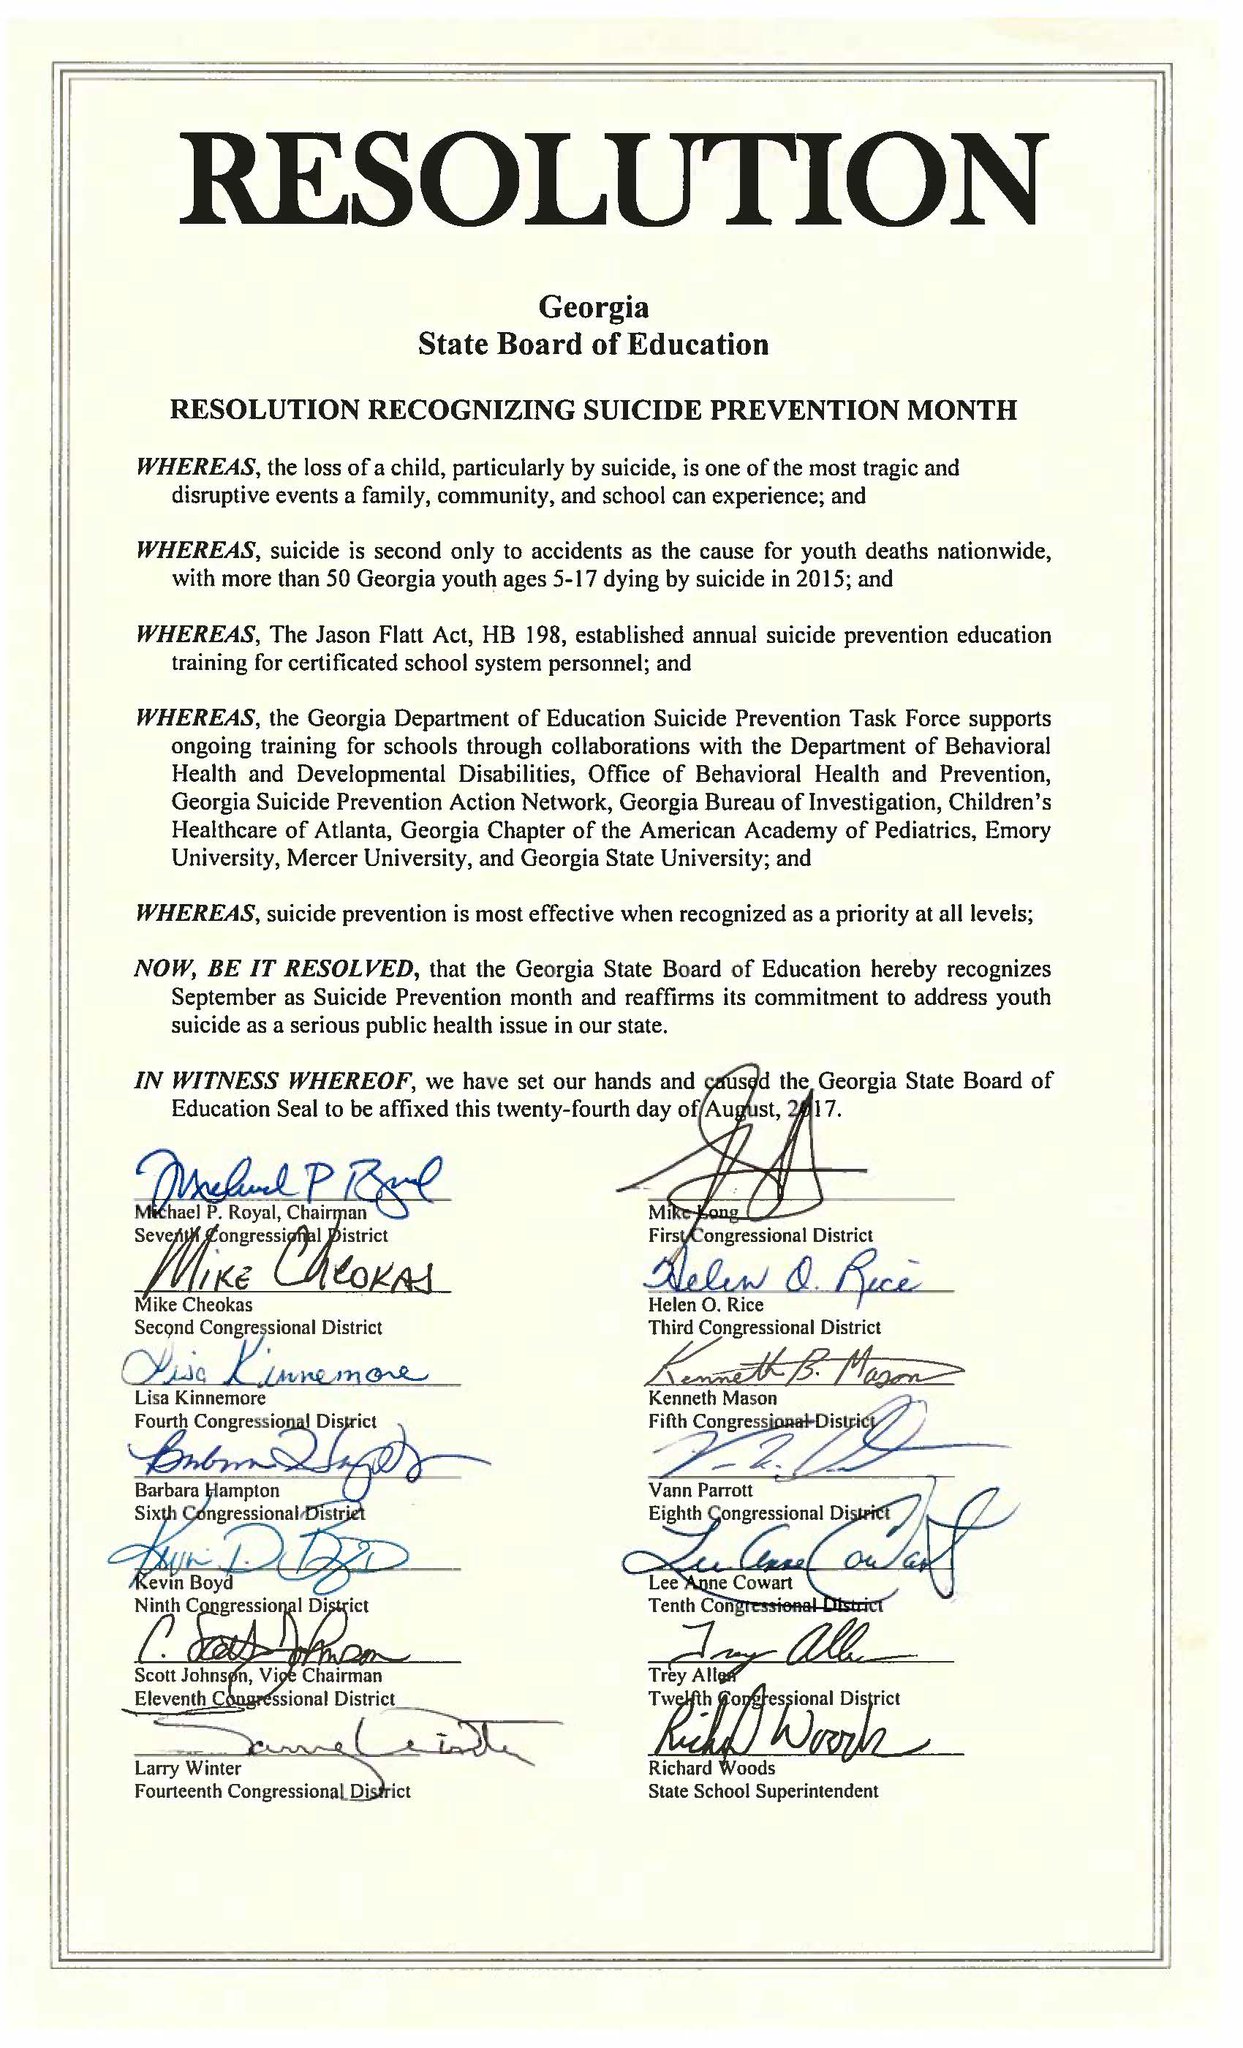 RESOLUTION
Georgia
State Board of Education
RESOLUTION RECOGNIZING SUICIDE PREVENTION MONTH
WHEREAS, the loss of a child, particularly by suicide, is one of the most tragic and
disruptive events a family, community, and school can experience; and
WHEREAS, suicide is second only to accidents as the cause for youth deaths nationwide,
with more than 50 Georgia youth ages 5-17 dying by suicide in 2015; and
WHEREAS, The Jason Flatt Act, HB 198, established annual suicide prevention education
training for certificated school system personnel; and
WHEREAS, the Georgia Department of Education Suicide Prevention Task Force supports
ongoing training for schools through collaborations with the Department of Behavioral
Health and Developmental Disabilities, Office of Behavioral Health and Prevention,
Georgia Suicide Prevention Action Network, Georgia Bureau of Investigation, Children's
Healthcare of Atlanta, Georgia Chapter of the American Academy of Pediatrics, Emory
University, Mercer University, and Georgia State University; and
WHEREAS, suicide prevention is most effective when recognized as a priority at all levels;
NOW, BE IT RESOLVED, that the Georgia State Board of Education hereby recognizes
September as Suicide Prevention month and reaffirms its commitment to address youth
suicide as a serious public health issue in our state.
IN WITNESS WHEREOF, we have set our hands and caused the Georgia State Board of
Education Seal to be affixed this twenty-fourth day of August, 2017.
Michael P Royal
Michael P. Royal, Chairman
Mike Long
Seventh Congressional District
First Congressional District
MIKE CHEOKAS
Helen O. Rice
Mike Cheokas
Helen O. Rice
Second Congressional District
Third Congressional District
Lisa Kinnemore
Kenneth B. Mason
Lisa Kinnemore
Kenneth Mason
Fourth Congressional District
Fifth Congressional District
Barbara Hampton
Vann Parrott
Sixth Congressional District
Eighth Congressional District
Kevin D. Boyd
Lee Anne Cowart
Kevin Boyd
Lee Anne Cowart
Ninth Congressional District
Tenth Congressional District
C. Scott Johnson
Trey Allen
Scott Johnson, Vice Chairman
Trey Allen
Eleventh Congressional District
Twelfth Congressional District
Richard Woods
Larry Winter
Richard Woods
Fourteenth Congressional District
State School Superintendent